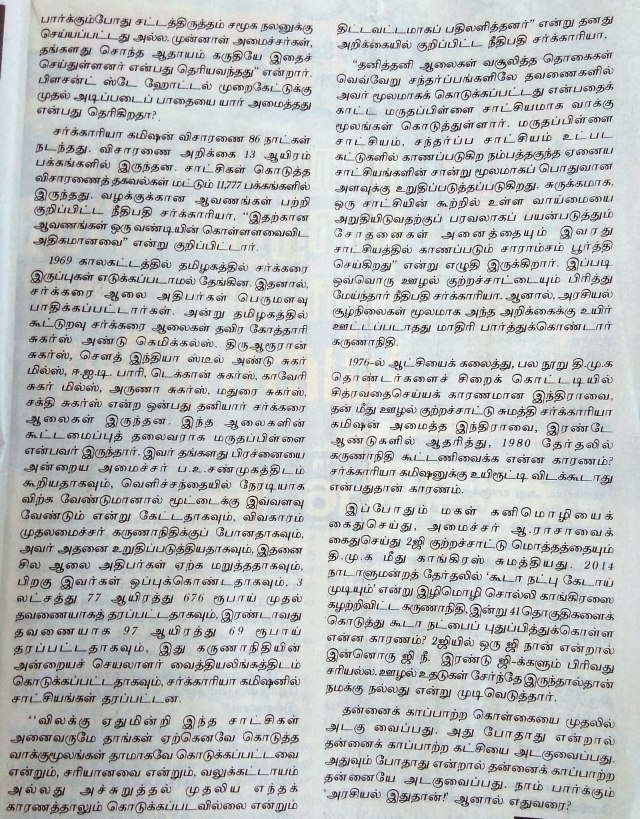 பார்க்கும்போது சட்டத்திருத்தம் சமூக நலனுக்கு
செய்யப்பட்டது அல்ல. முன்னாள் அமைச்சர்கள்,
தங்களது சொந்த ஆதாயம் கருதியே இதைச்
செய்துள்ளனர் என்பது தெரியவந்தது" என்றார்.
பிளசன்ட் ஸ்டே ஹோட்டல் முறைகேட்டுக்கு
முதல் அடிப்படைப் பாதையை யார் அமைத்தது
என்பது தெரிகிறதா?
சர்க்காரியா கமிஷன் விசாரணை 86 நாட்கள்
நடந்தது. விசாரணை அறிக்கை 13 ஆயிரம்
பக்கங்களில் இருந்தன. சாட்சிகள் கொடுத்த
விசாரணைத் தகவல்கள் மட்டும் 11,777 பக்கங்களில்
இருந்தது. வழக்குக்கான ஆவணங்கள் பற்றி
குறிப்பிட்ட நீதிபதி சர்க்காரியா, ''இதற்கான
ஆவணங்கள் ஒரு வண்டியின் கொள்ளளவைவிட
அதிகமானவை" என்று குறிப்பிட்டார்.
1969 காலகட்டத்தில் தமிழகத்தில் சர்க்கரை
இருப்புகள் எடுக்கப்படாமல் தேங்கின. இதனால்,
சர்க்கரை ஆலை அதிபர்கள் பெருமளவு
பாதிக்கப்பட்டார்கள். அன்று தமிழகத்தில்
கூட்டுறவு சர்க்கரை ஆலைகள் தவிர கோத்தாரி
சுகர்ஸ் அண்டு கெமிக்கல்ஸ். திருஆரூரான்
சுகர்ஸ், சௌத் இந்தியா ஸ்டீல் அண்டு சுகர்
மில்ஸ், ஈ.ஐ.டி. பாரி, டெக்கான் சுகர்ஸ், காவேரி
சுகர் மில்ஸ், அருணா சுகர்ஸ், மதுரை சுகர்ஸ்,
சக்தி சுகர்ஸ் என்ற ஒன்பது தனியார் சர்க்கரை
ஆலைகள் இருந்தன. இந்த ஆலைகளின்
கூட்டமைப்புத் தலைவராக மருதப்பிள்ளை
என்பவர் இருந்தார். இவர் தங்களது பிரச்னையை
அன்றைய அமைச்சர் ப.உ.சண்முகத்திடம்
கூறியதாகவும், வெளிச்சந்தையில் நேரடியாக
விற்க வேண்டுமானால் மூட்டைக்கு இவ்வளவு
வேண்டும் என்று கேட்டதாகவும், விவகாரம்
முதலமைச்சர் கருணாநிதிக்குப் போனதாகவும்,
அவர் அதனை உறுதிப்படுத்தியதாகவும், இதனை
சில ஆலை அதிபர்கள் ஏற்க மறுத்ததாகவும்,
பிறகு இவர்கள் ஒப்புக்கொண்டதாகவும். 3
லட்சத்து 77 ஆயிரத்து 676 ரூபாய் முதல்
தவணையாகத் தரப்பட்டதாகவும், இரண்டாவது
தவணையாக 97 ஆயிரத்து 69 ரூபாய்
தரப்பட்டதாகவும், இது கருணாநிதியின்
அன்றையச் செயலாளர் வைத்தியலிங்கத்திடம்
கொடுக்கப்பட்டதாகவும், சர்க்காரியா கமிஷனில்
சாட்சியங்கள் தரப்பட்டன.
''விலக்கு ஏதுமின்றி இந்த சாட்சிகள்
அனைவருமே தாங்கள் ஏற்கெனவே கொடுத்த
வாக்குமூலங்கள் தாமாகவே கொடுக்கப்பட்டவை
என்றும், சரியானவை என்றும், வலுக்கட்டாயம்
அல்லது அச்சுறுத்தல் முதலிய எந்தக்
காரணத்தாலும் கொடுக்கப்படவில்லை என்றும்
திட்டவட்டமாகப் பதிலளித்தனர்" என்று தனது
அறிக்கையில் குறிப்பிட்ட நீதிபதி சர்க்காரியா,
"தனித்தனி ஆலைகள் வசூலித்த தொகைகள்
வெவ்வேறு சந்தர்ப்பங்களிலே தவணைகளில்
அவர் மூலமாகக் கொடுக்கப்பட்டது என்பதைக்
காட்ட மருதப்பிள்ளை சாட்சியமாக வாக்கு
மூலங்கள் கொடுத்துள்ளார். மருதப்பிள்ளை
சாட்சியம், சந்தர்ப்ப சாட்சியம் உட்பட
கட்டுகளில் காணப்படுகிற நம்பத்தகுந்த ஏனைய
சாட்சியங்களின் சான்று மூலமாகப் பொதுவான
அளவுக்கு உறுதிப்படுத்தப்படுகிறது. சுருக்கமாக,
ஒரு சாட்சியின் கூற்றில் உள்ள வாய்மையை
அறுதியிடுவதற்குப் பரவலாகப் பயன்படுத்தும்
சோதனைகள் அனைத்தையும் இவரது
சாட்சியத்தில் காணப்படும் சாராம்சம் பூர்த்தி
செய்கிறது" என்று எழுதி இருக்கிறார். இப்படி
ஒவ்வொரு ஊழல் குற்றச்சாட்டையும் பிரித்து
மேய்ந்தார் நீதிபதி சர்க்காரியா. ஆனால், அரசியல்
சூழ்நிலைகள் மூலமாக அந்த அறிக்கைக்கு உயிர்
ஊட்டப்படாதது மாதிரி பார்த்துக்கொண்டார்
கருணாநிதி.
1976-ல் ஆட்சியைக் கலைத்து, பல நூறு தி.மு.க
தொண்டர்களைச் சிறைக் கொட்டடியில்
சித்ரவதைசெய்யக் காரணமான இந்திராவை,
தன் மீது ஊழல் குற்றச்சாட்டு சுமத்தி சர்க்காரியா
கமிஷன் அமைத்த இந்திராவை, இரண்டே
ஆண்டுகளில் ஆதரித்து, 1980 தேர்தலில்
கருணாநிதி கூட்டணிவைக்க என்ன காரணம்?
சர்க்காரியா கமிஷனுக்கு உயிரூட்டி விடக்கூடாது
என்பதுதான் காரணம்.
இப்போதும் மகள் கனிமொழியைக்
கைதுசெய்து, அமைச்சர் ஆ.ராசாவைக்
கைதுசெய்து 2ஜி குற்றச்சாட்டு மொத்தத்தையும்
தி.மு.க மீது காங்கிரஸ் சுமத்தியது. 2014
நாடாளுமன்றத் தேர்தலில் 'கூடா நட்பு கேடாய்
முடியும்' என்று இழிமொழி சொல்லி காங்கிரஸை
கழற்றிவிட்ட கருணாநிதி,இன்று 41 தொகுதிகளைக்
கொடுத்து கூடா நட்பைப் புதுப்பித்துக்கொள்ள
என்ன காரணம்? 2ஜியில் ஒரு ஜி நான் என்றால்
இன்னொரு ஜி நீ. இரண்டு ஜி-க்களும் பிரிவது
சரியல்ல. ஊழல் உதடுகள் சேர்ந்தே இருந்தால்தான்
நமக்கு நல்லது என்று முடிவெடுத்தார்.
தன்னைக் காப்பாற்ற கொள்கையை முதலில்
அடகு வைப்பது. அது போதாது என்றால்
தன்னைக் காப்பாற்ற கட்சியை அடகுவைப்பது.
அதுவும் போதாது என்றால் தன்னைக் காப்பாற்ற
தன்னையே அடகுவைப்பது. நாம் பார்க்கும்
'அரசியல் இதுதான்!' ஆனால் எதுவரை?